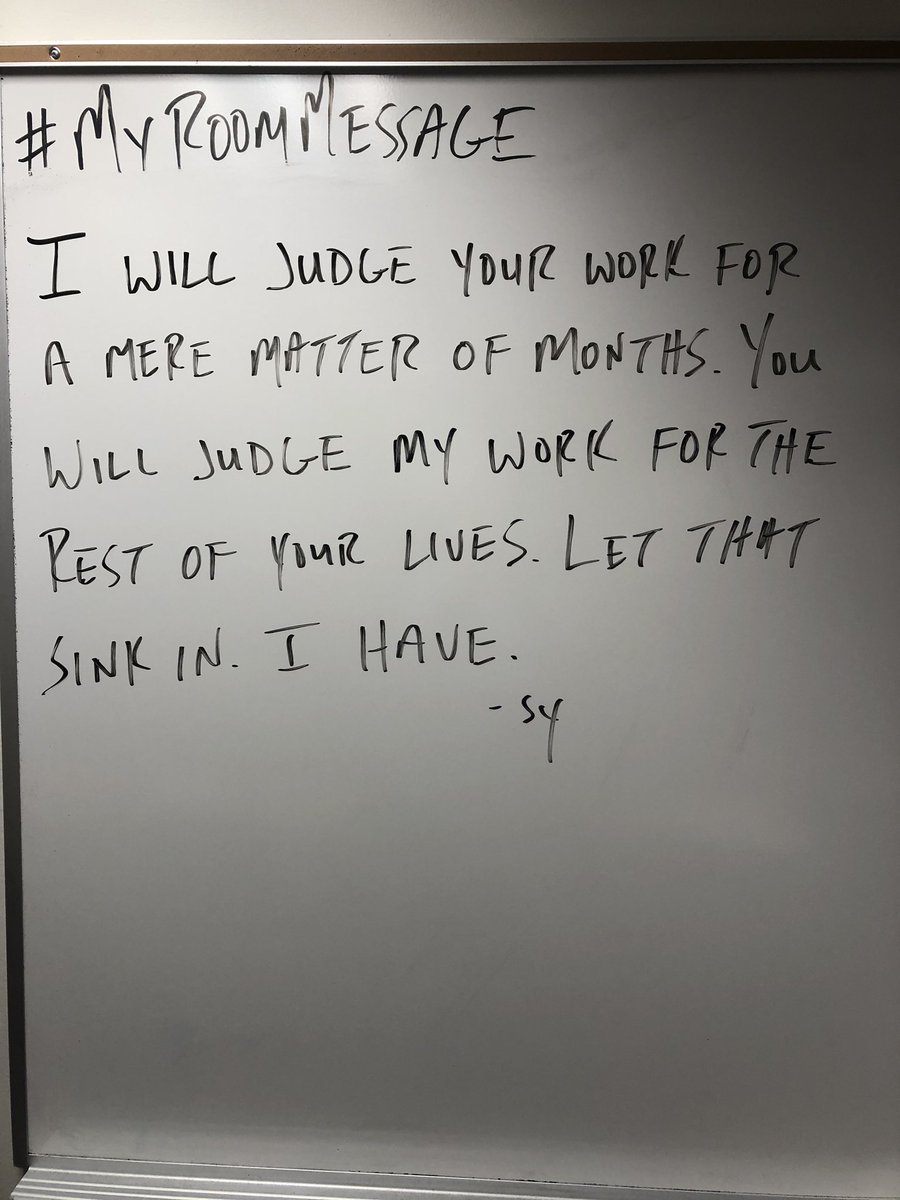 #MYROOMMESSAGE
I WILL JUDGE YOUR WORK FOR
A MERE MATTER OF MONTHS. YOU
WILL JUDGE MY WORK FOR THE
REST OF YOUR LIVES. LET THAT
SINK IN. I HAVE.
- SY